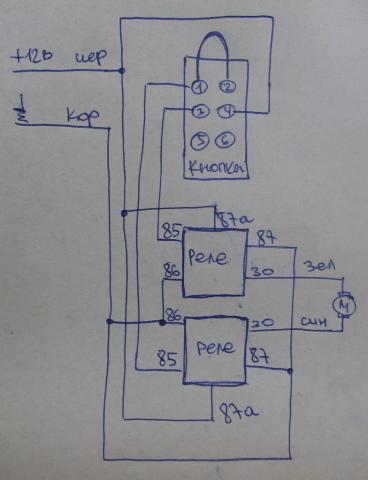 +12в чер
кор
1 2
3 4
5 6
кнопка
87а
85 87
Реле
86 30 зел
М
86 30 син
Реле
85 87
87а